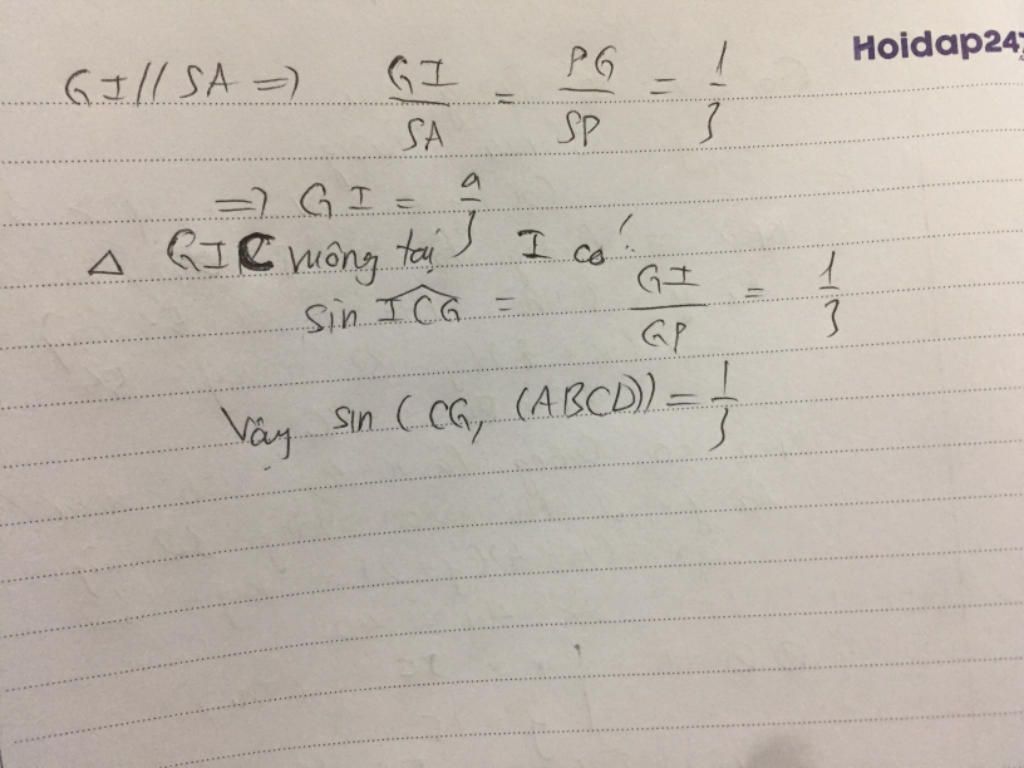 Hoidap247
GI // SA => GI/SA = PG/SP = 1/3
=> GI = a/3
Δ GIC vuông tại I có:
sin ICG = GI/GP = 1/3
Vậy sin (CG, (ABCD)) = 1/3